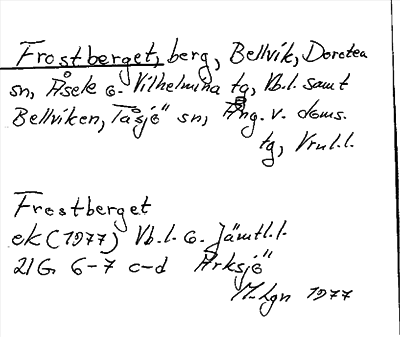 Frostberget, berg, Bellvik, Dorotea
sn, Åsele o. Vilhelmina tg, Vb.l. samt
Bellviken, Tåsjö sn, Ång. v. doms.
tg, Vrnl.l.
Frostberget
ek (1977) Vb.l. o. Jämtl.l.
21G 6-7 c-d Arksjö
M-lgn 1977